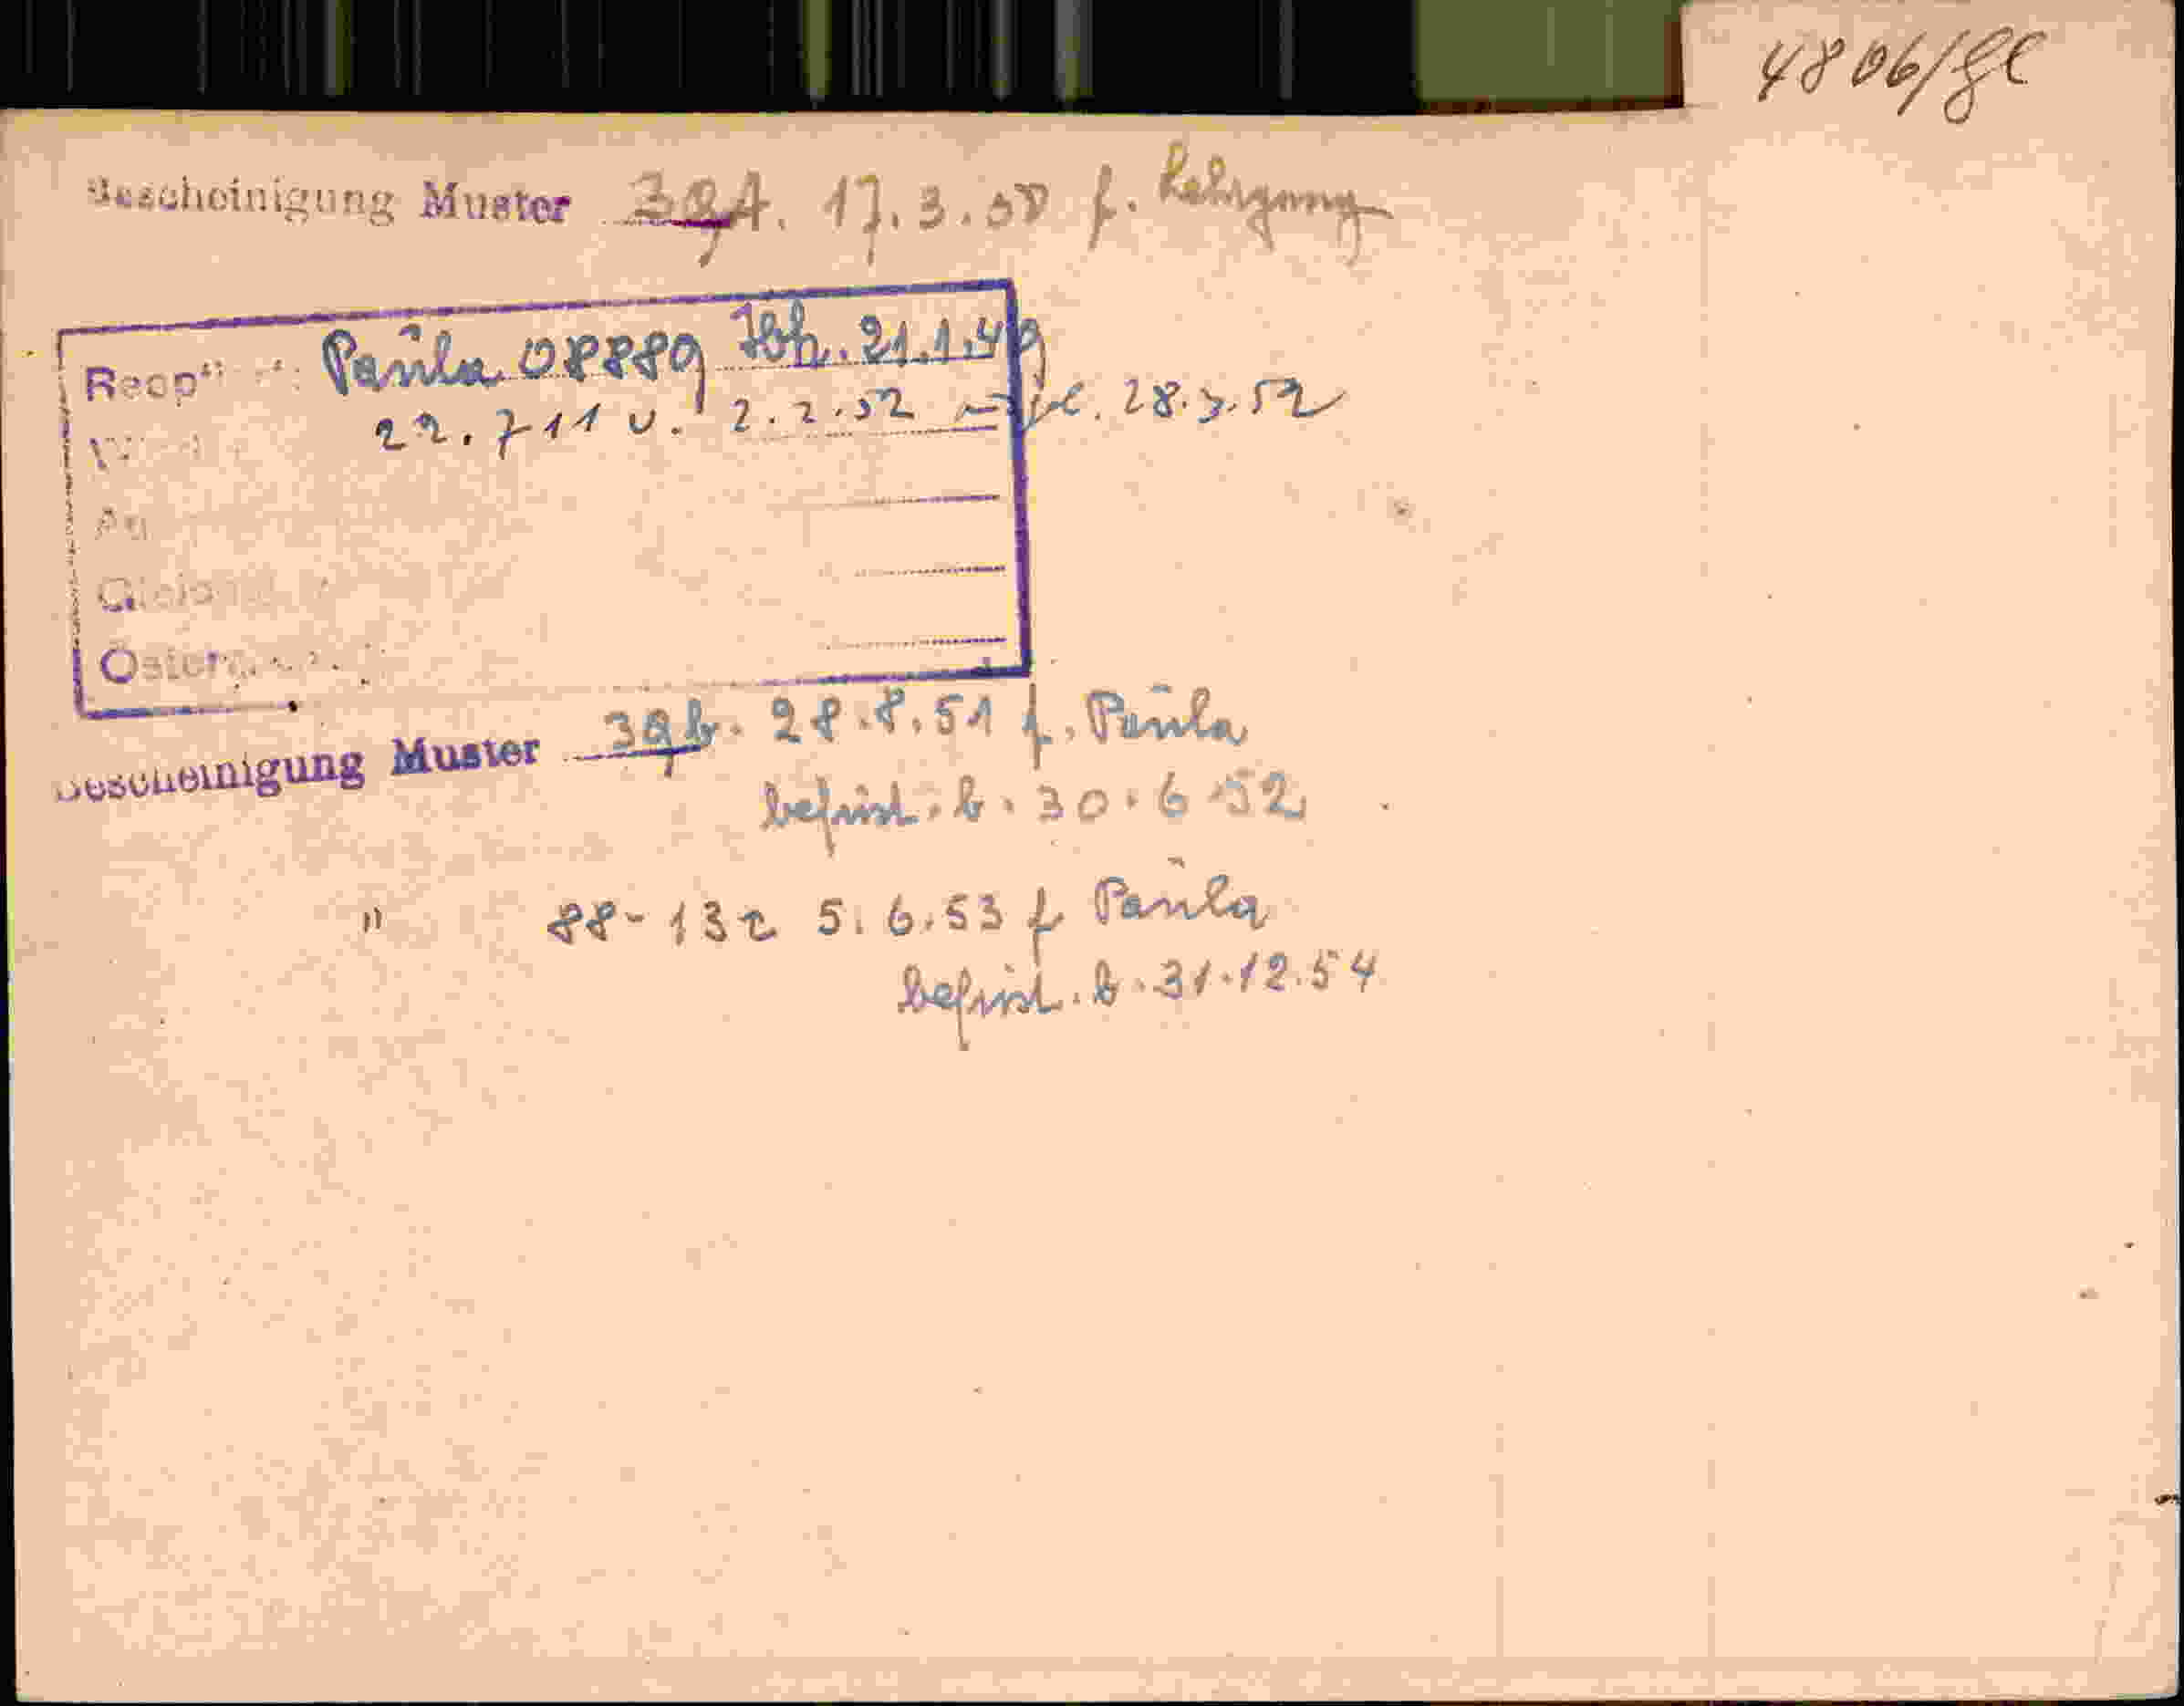 4806/
Bescheinigung Muster 39A. 17.3.50 f. Lehrgang
Paula 08889 Ibh. 21.1.49
22.711 v. 2.2.52 28.3.52
Bescheinigung Muster 39b. 28.8.51 f. Paula
befrist. b. 30.6.52
" 88-132 5.6.53 f Paula
befrist. b. 31.12.54